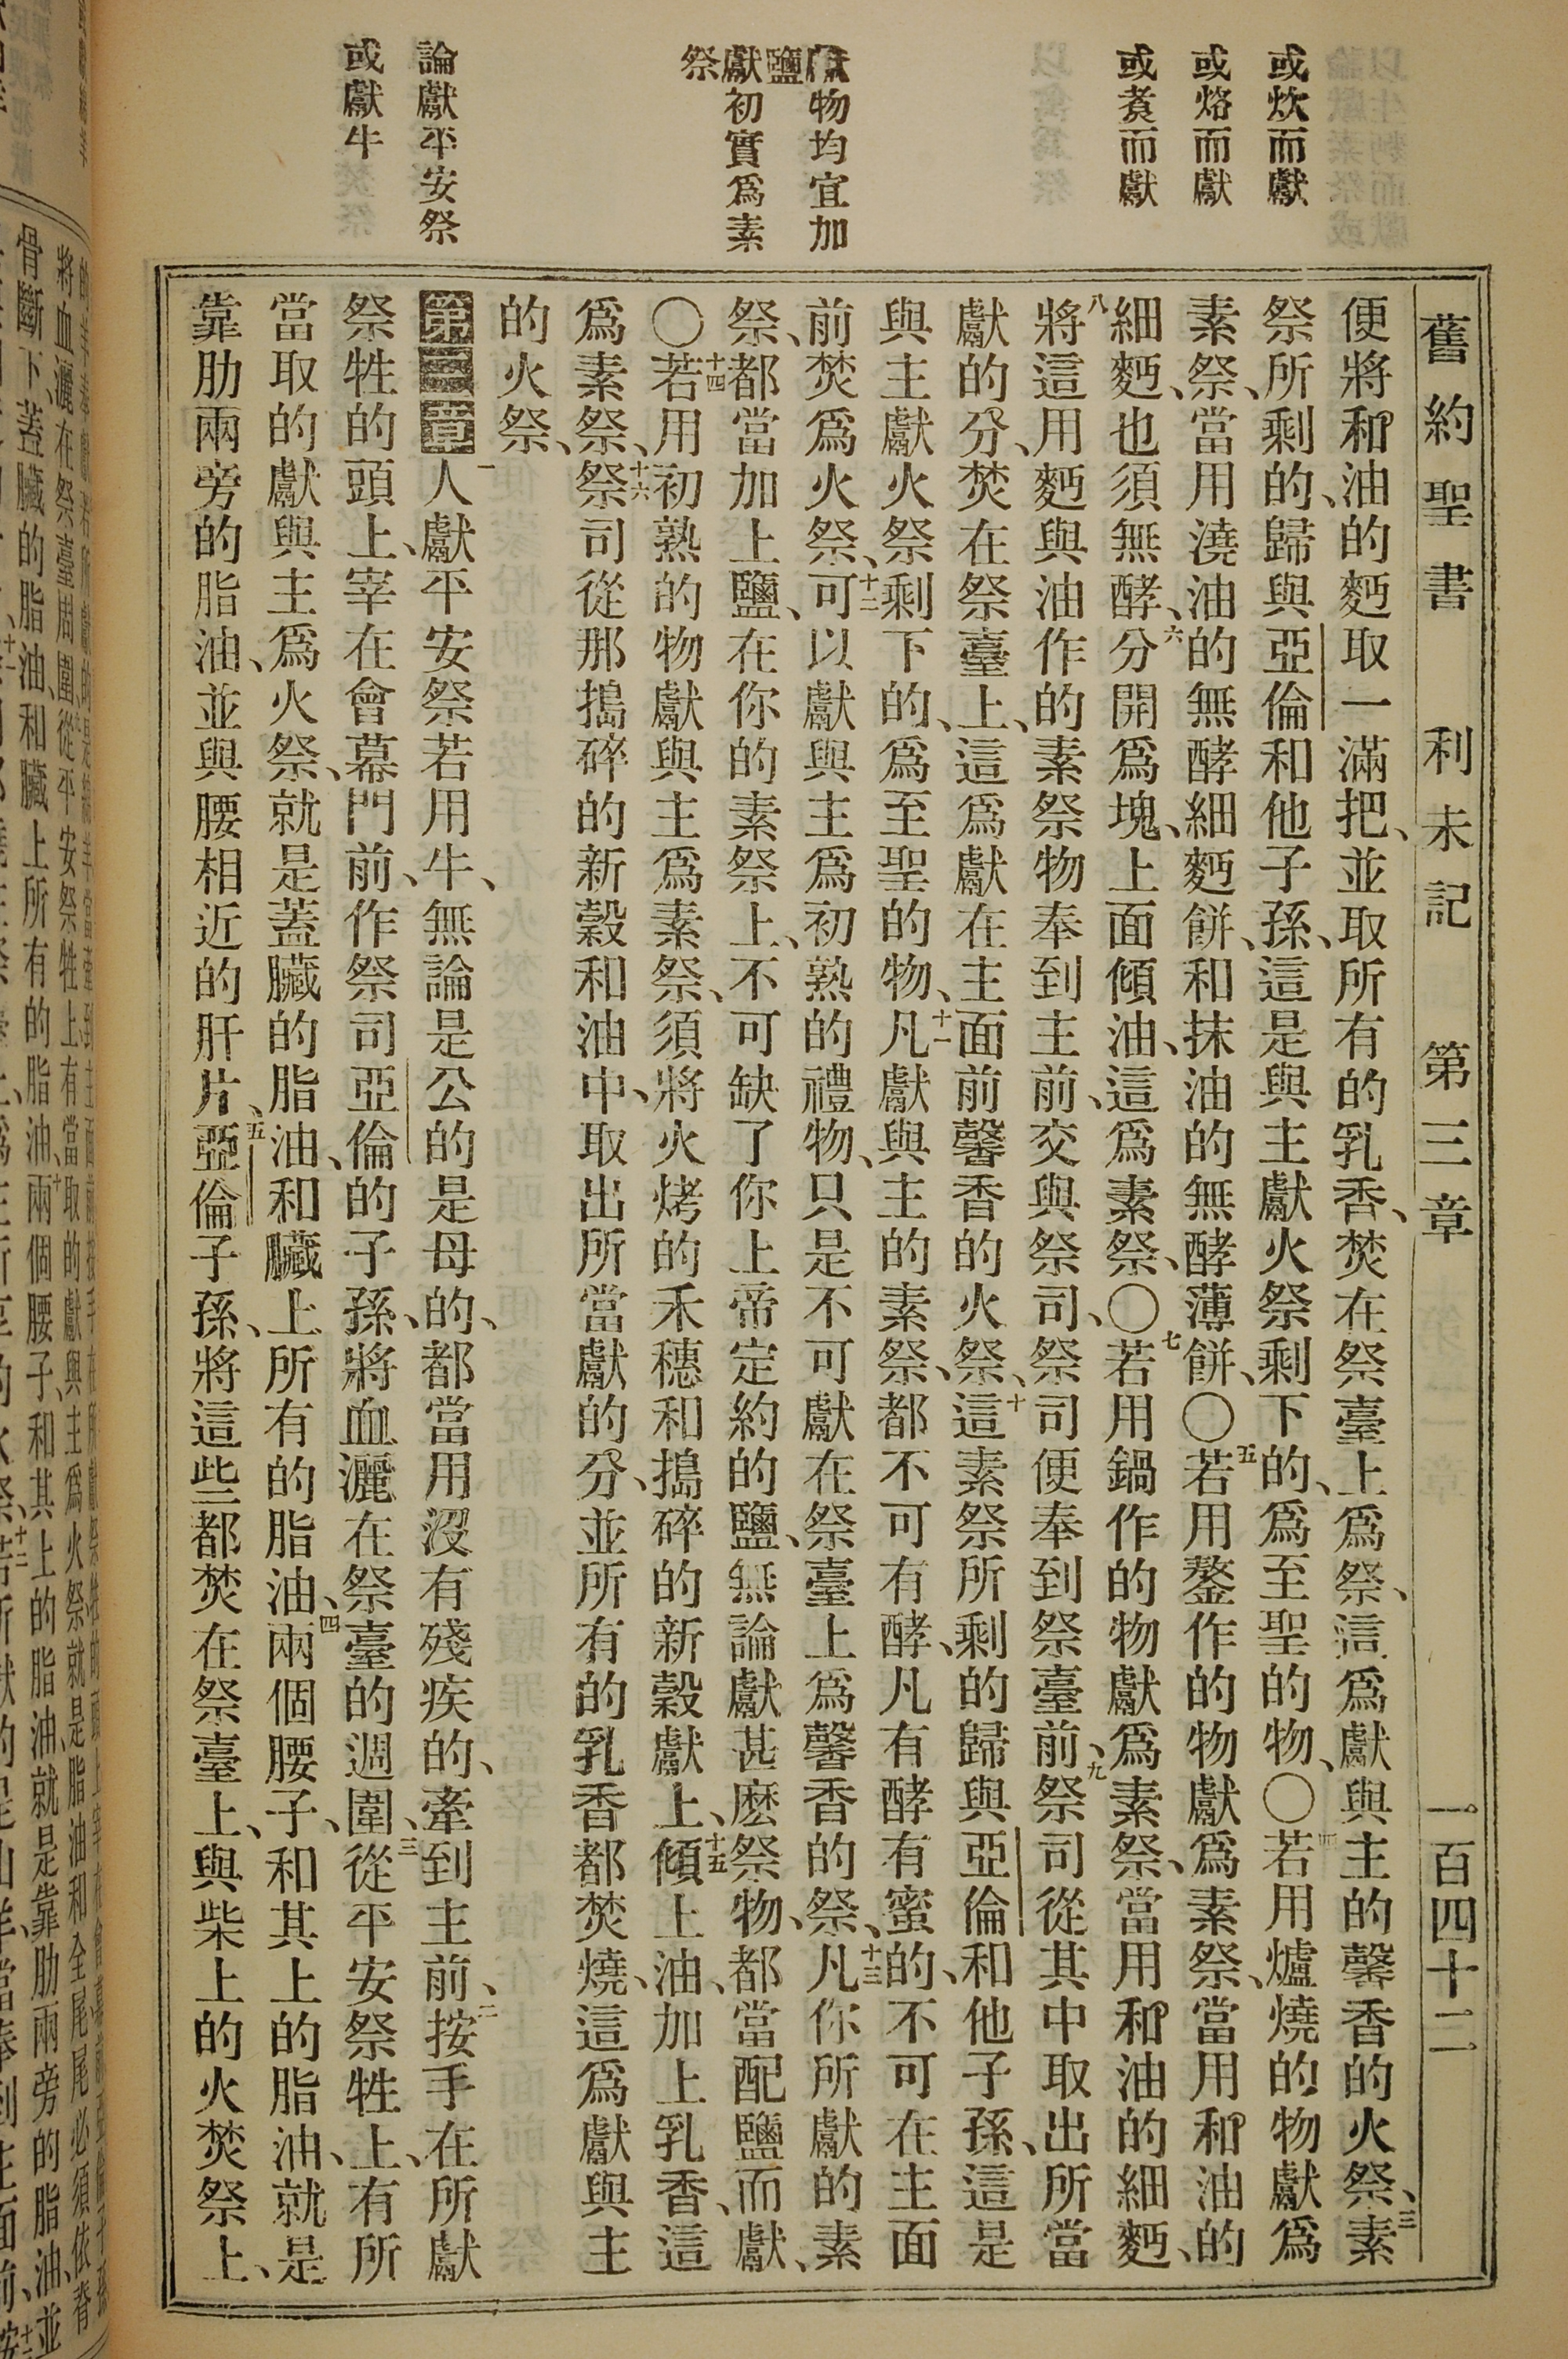 舊約聖書 利未記 第三章 一百四十二
或炊而獻
或烙而獻
或煑而獻
物均宜加
鹽
獻初實爲素
祭
論獻平安祭
或獻牛
便將和油的麪取一滿把、並取所有的乳香、焚在祭臺上爲祭、這爲獻與主的馨香的火祭、三素
祭所剩的、歸與亞倫和他子孫、這是與主獻火祭剩下的、爲至聖的物、〇四若用爐燒的物獻爲
素祭、當用澆油的無酵細麪餅、和抹油的無酵薄餅、〇五若用鏊作的物獻爲素祭、當用和油的
細麪、也須無酵、六分開爲塊、上面傾油、這爲素祭、〇七若用鍋作的物獻爲素祭、當用和油的細麪、
八將這用麪與油作的素祭物奉到主前、交與祭司、祭司便奉到祭臺前、九祭司從其中取出所當
獻的分、焚在祭臺上、這爲獻在主面前馨香的火祭、十這素祭所剩的歸與亞倫和他子孫、這是
與主獻火祭剩下的、爲至聖的物、十一凡獻與主的素祭、都不可有酵、凡有酵有蜜的、不可在主面
前焚爲火祭、十二可以獻與主爲初熟的禮物、只是不可獻在祭臺上爲馨香的祭、十三凡你所獻的素
祭、都當加上鹽、在你的素祭上、不可缺了你上帝定約的鹽、無論獻甚麽祭物、都當配鹽而獻、
〇十四若用初熟的物獻與主爲素祭、須將火烤的禾穗和搗碎的新穀獻上、十五傾上油、加上乳香、這
爲素祭、十六祭司從那搗碎的新穀和油中、取出所當獻的分、並所有的乳香都焚燒、這爲獻與主
的火祭、
第三章一人獻平安祭若用牛、無論是公的是母的、都當用沒有殘疾的、牽到主前、二按手在所獻
祭牲的頭上、宰在會幕門前、作祭司亞倫的子孫、將血灑在祭臺的週圍、三從平安祭牲上、有所
當取的獻與主爲火祭、就是蓋臟的脂油、和臟上所有的脂油、四兩個腰子、和其上的脂油、就是
靠肋兩旁的脂油、並與腰相近的肝片、五亞倫子孫、將這些都焚在祭臺上、與柴上的火焚祭上、
骨斷下、蓋臟的脂油、和臟上所有的脂油、十兩個腰子、和其上的脂油、就是靠肋兩旁的脂油、並